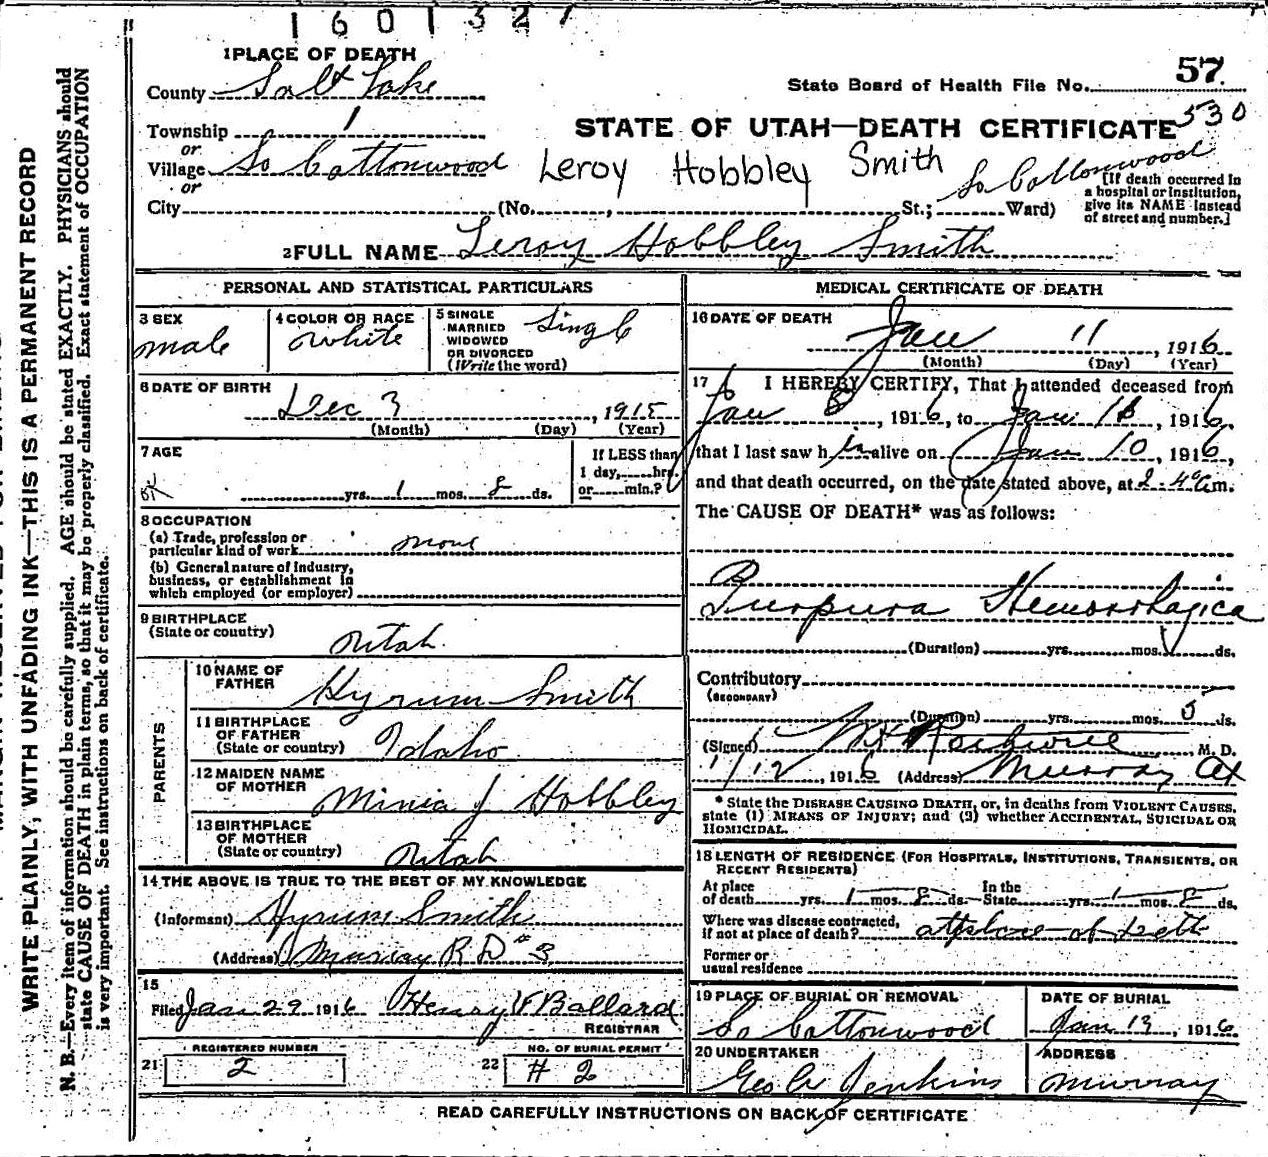 1601327
1 PLACE OF DEATH
County Salt Lake
State Board of Health File No. 57
530
Township 1
STATE OF UTAH—DEATH CERTIFICATE
or
Village So Cottonwood
Leroy Hobbley Smith
So Cottonwood
or
City (No. , St.; Ward)
[If death occurred in
a hospital or institution,
give its NAME instead
of street and number.]
2 FULL NAME Leroy Hobbley Smith
PERSONAL AND STATISTICAL PARTICULARS
3 SEX
male
4 COLOR OR RACE
White
5 SINGLE
MARRIED
WIDOWED
OR DIVORCED
(Write the word)
Single
6 DATE OF BIRTH
Dec 3, 1915
(Month) (Day) (Year)
7 AGE
yrs. 1 mos. 8 ds.
If LESS than
1 day, hrs.
or min.?
8 OCCUPATION
(a) Trade, profession or
particular kind of work none
(b) General nature of industry,
business, or establishment in
which employed (or employer)
9 BIRTHPLACE
(State or country)
Utah
PARENTS
10 NAME OF
FATHER
Hyrum Smith
11 BIRTHPLACE
OF FATHER
(State or country)
Idaho
12 MAIDEN NAME
OF MOTHER
Minia J Hobbley
13 BIRTHPLACE
OF MOTHER
(State or country)
Utah
14 THE ABOVE IS TRUE TO THE BEST OF MY KNOWLEDGE
(Informant) Hyrum Smith
(Address) Murray R D # 3
15
Filed Jan 29 1916 Henry V Ballard
REGISTRAR
REGISTERED NUMBER
21 2
NO. OF BURIAL PERMIT
22 # 2
MEDICAL CERTIFICATE OF DEATH
16 DATE OF DEATH
Jan 11, 1916
(Month) (Day) (Year)
17 I HEREBY CERTIFY, That I attended deceased from
Jan 8, 1916, to Jan , 1916,
that I last saw h alive on Jan 10, 1916,
and that death occurred, on the date stated above, at 2-40 a m.
The CAUSE OF DEATH* was as follows:
Purpura Hemorrhagica
(Duration) yrs. mos. ds.
Contributory
(SECONDARY)
(Duration) yrs. mos. 5 ds.
(Signed) M. D.
1/12, 1916 (Address) Murray
* State the DISEASE CAUSING DEATH, or, in deaths from VIOLENT CAUSES,
state (1) MEANS OF INJURY; and (2) whether ACCIDENTAL, SUICIDAL OR
HOMICIDAL.
18 LENGTH OF RESIDENCE (FOR HOSPITALS, INSTITUTIONS, TRANSIENTS, OR
RECENT RESIDENTS)
At place
of death yrs. 1 mos. 8 ds.
In the
State yrs. 1 mos. 8 ds.
Where was disease contracted,
if not at place of death? at place of death
Former or
usual residence
19 PLACE OF BURIAL OR REMOVAL
So Cottonwood
DATE OF BURIAL
Jan 13, 1916
20 UNDERTAKER
Geo A Jenkins
ADDRESS
Murray
READ CAREFULLY INSTRUCTIONS ON BACK OF CERTIFICATE
WRITE PLAINLY, WITH UNFADING INK—THIS IS A PERMANENT RECORD
N. B.—Every item of information should be carefully supplied. AGE should be stated EXACTLY. PHYSICIANS should
state CAUSE OF DEATH in plain terms, so that it may be properly classified. Exact statement of OCCUPATION
is very important. See instructions on back of certificate.